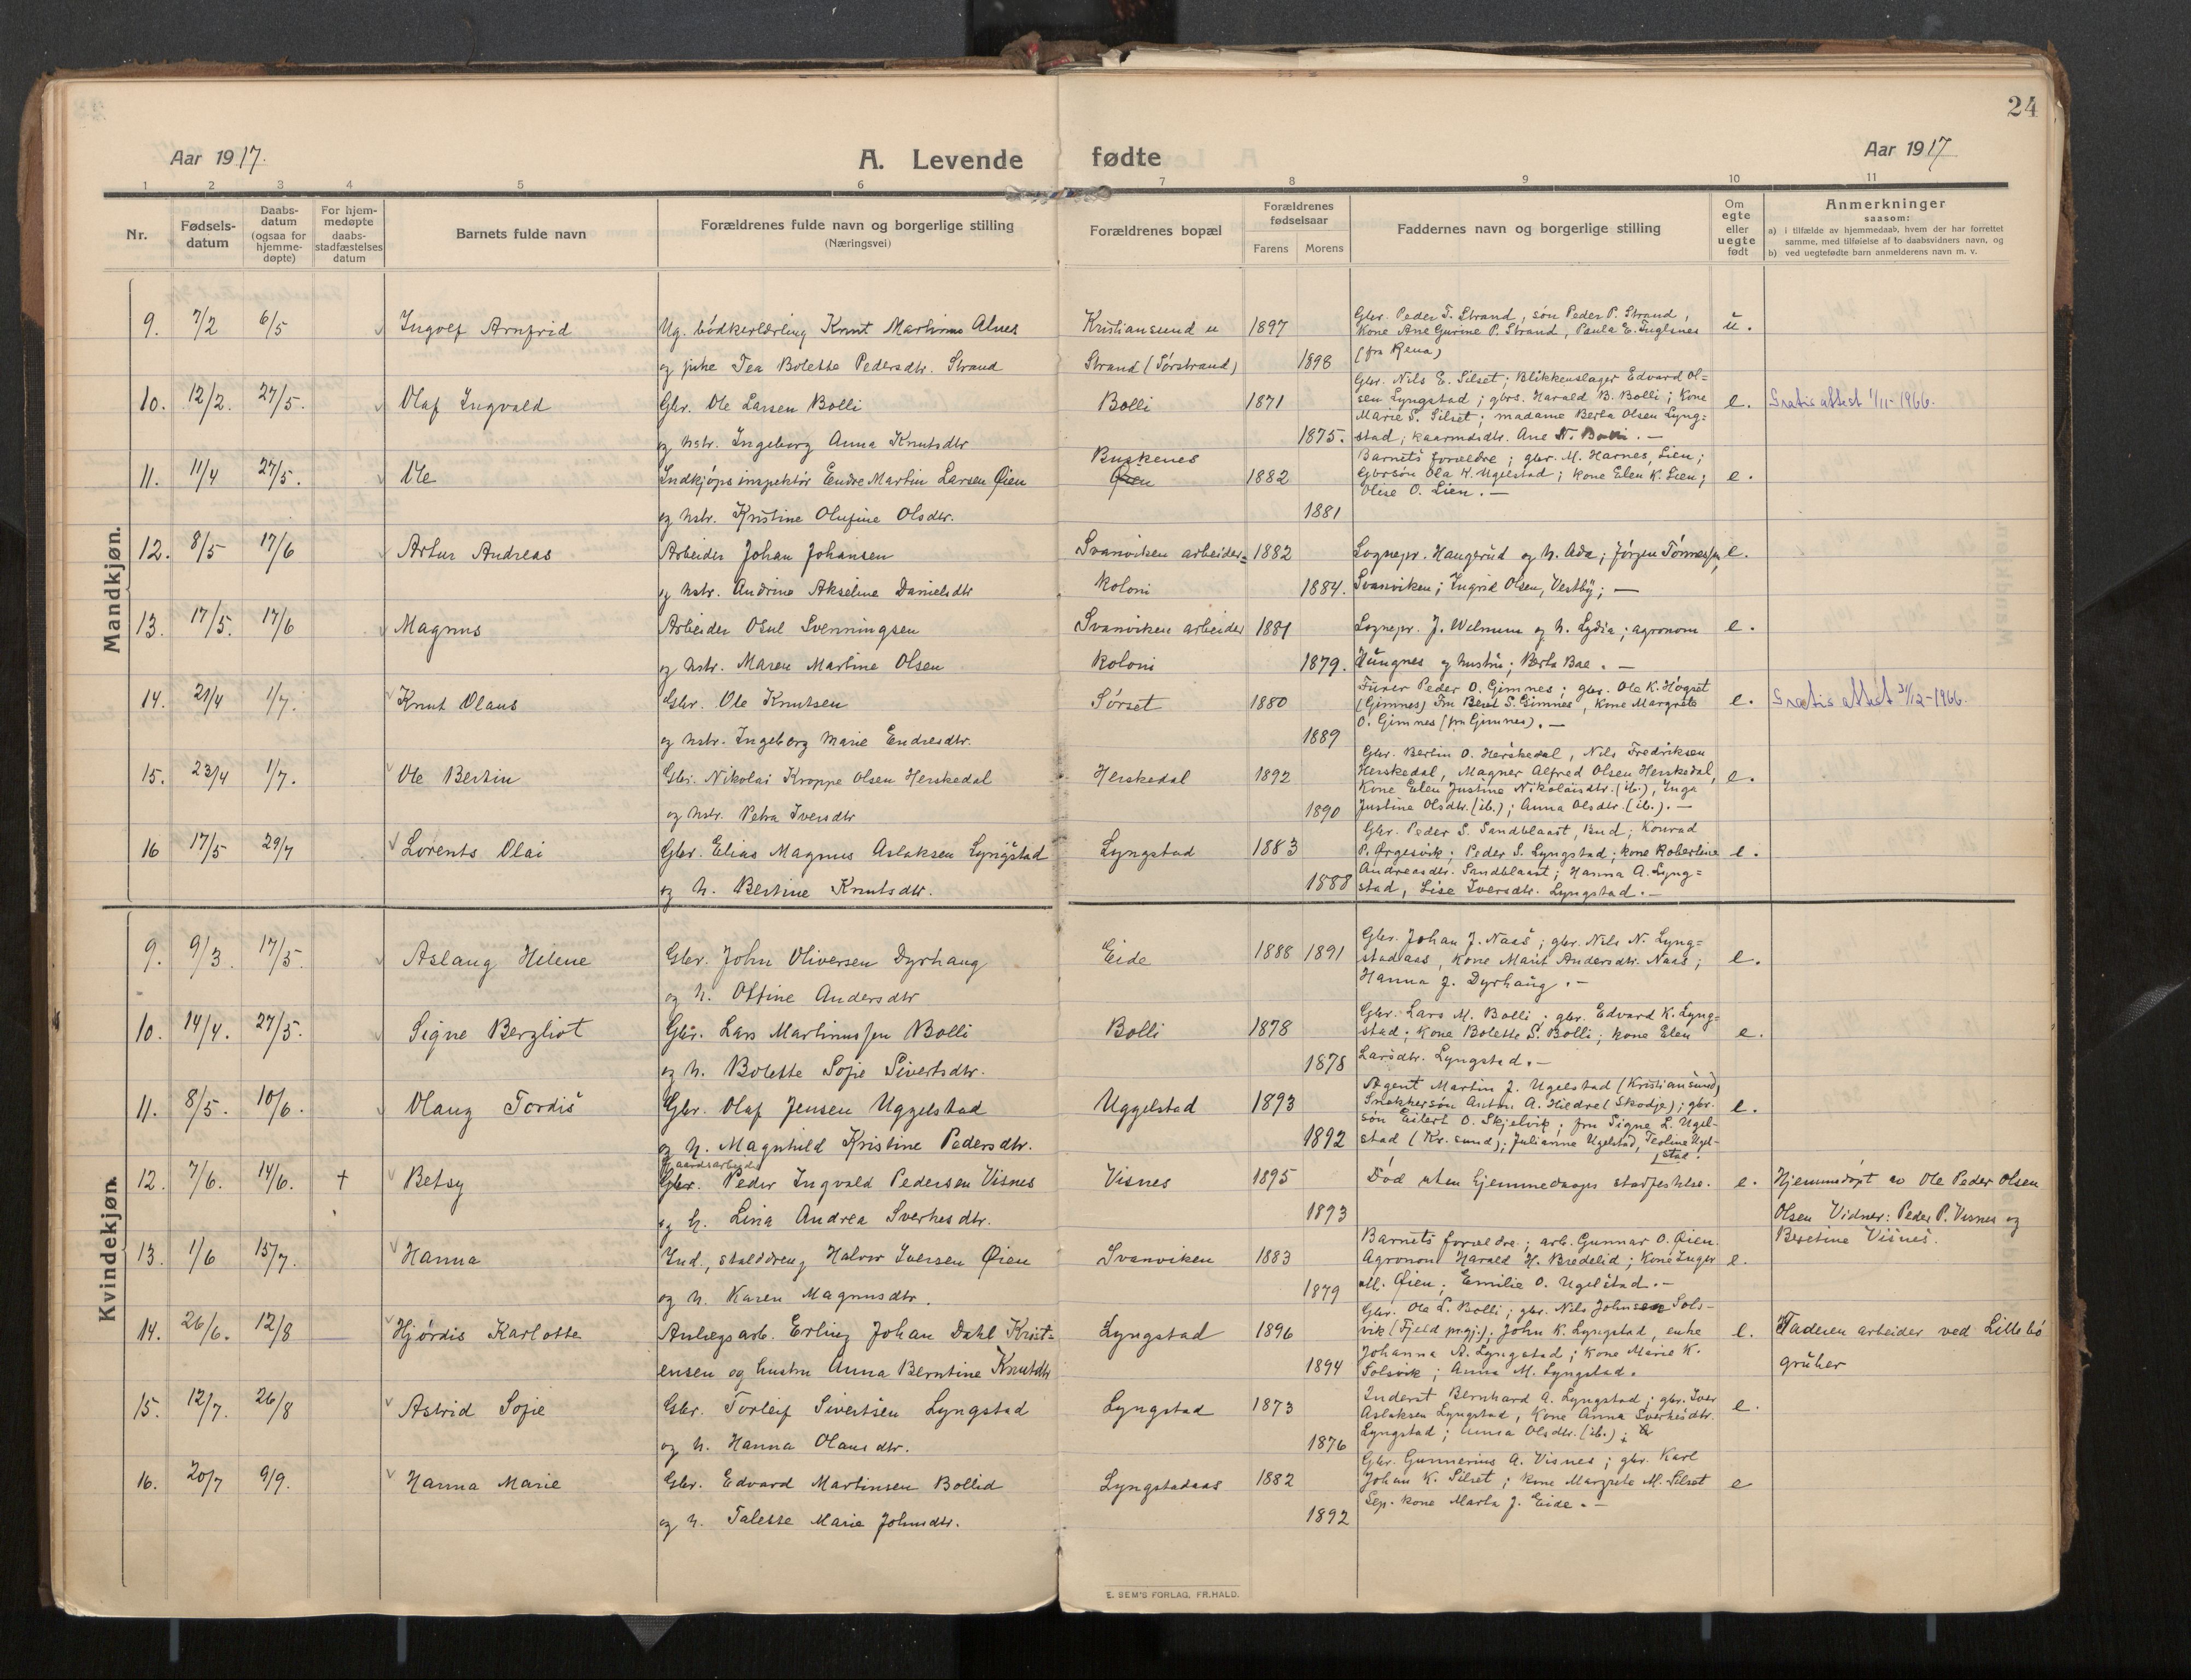 24
Aar 1917.
A. Levende fødte
Aar 1917
1 2 3 4 5 6 7 8 9 10 11
Nr.
Fødsels-
datum
Daabs-
datum
(ogsaa for
hjemme-
døpte)
For hjem-
medøpte
daabs-
stadfæstelses
datum
Barnets fulde navn
Forældrenes fulde navn og borgerlige stilling
(Næringsvei)
Forældrenes bopæl
Forældrenes
fødselsaar
Farens Morens
Faddernes navn og borgerlige stilling
Om
egte
eller
uegte
født
Anmerkninger
saasom:
a) i tilfælde av hjemmedaab, hvem der har forrettet
samme, med tilføielse af to daabsvidners navn, og
b) ved uegtefødte barn anmelderens navn m. v.
Mandkjøn.
9. 7/2 6/5 Ingolf Arnfrid
Ug. bødkerlærling Knut Martinus Alnes
og pike Tea Bolette Pedersdtr. Strand
Kristiansund n
Strand (Sørstrand)
1897
1898
Gbr. Peder T. Strand, søn Peder P. Strand,
Kone Ane Gurine P. Strand, Paula E. Fuglsnes
(fra Rena)
u.
10. 12/2. 27/5. Olaf Ingvald
Gbr. Ole Larsen Bolli
og hstr. Ingeborg Anna Knutsdtr
Bolli
1871
1875.
Gbr. Nils E. Silset; Blikkenslager Edvard Ol=
sen Lyngstad; gbrs. Harald B. Bolli; Kone
Marie S. Silset; madame Berta Olsen Lyng=
stad; kaarmdsdtr. Ane N. Bolli. —
e.
Gratis attest 1/11-1966.
11. 11/4 27/5. Ole
Indkjøpsinspektør Endre Martin Larsen Øien
og hstr. Kristine Olufine Olsdtr.
Buskenes
Øien
1882
1881
Barnets forældre; gbr. M. Harnes, Lien;
Gbrsøn Ola K. Ugelstad; kone Elen K. Lien;
Olise O. Lien. —
e.
12. 8/5 17/6 Artur Andreas
Arbeider Johan Johansen
og hstr. Andrine Akseline Danielsdtr
Svanviken arbeider=
koloni
1882
1884.
Sognepr. Haugerud og h. Ada; Jørgen Tønnessen,
Svanviken; Ingrid Olsen, Vestby; —
e.
13. 17/5. 17/6 Magnus
Arbeider Osul Svenningsen
og hstr. Maren Martine Olsen
Svanviken arbeider
koloni
1881
1879.
Sognepr. J. Welmun og h. Lydia; agronom
Haugnes og hustru; Berta Bae. —
e.
14. 21/4 1/7. Knut Olaus
Gbr. Ole Knutsen
og hstr. Ingeborg Marie Endresdtr.
Sørset
1880
1889
Furer Peder O. Gimnes; gbr. Ole K. Høgset
(Gimnes) Fru Beret S. Gimnes, Kone Margrete
O. Gimnes (fra Gimnes). —
e.
Gratis attest 31/12-1966.
15. 23/4 1/7. Ole Bertin
Gbr. Nikolai Kroppe Olsen Herskedal
og hstr. Petra Iversdtr
Herskedal
1892
1890
Gbr. Bertin O. Herskedal, Nils Fredriksen
Herskedal, Magner Alfred Olsen Herskedal,
Kone Elen Justine Nikolaisdtr. (ib.), Inga
Justine Olsdtr. (ib.); Anna Olsdtr (ib.). —
e.
16 17/5 29/7 Lorents Olai
Gbr. Elias Magnus Aslaksen Lyngstad
og h. Bertine Knutsdtr.
Lyngstad
1883
1888
Gbr. Peder S. Sandblaast, Bud; Konrad
P. Ørgesvik; Peder S. Lyngstad; kone Robertine
Andreasdtr. Sandblaast; Hanna A. Lyng=
stad, Lise Iversdtr. Lyngstad. —
e.
Kvindekjøn.
9. 9/3. 17/5. Aslaug Helene
Gbr. John Oliversen Dyrhaug
og h. Ottine Andersdtr
Eide
1888 1891
Gbr. Johan J. Naas; gbr. Nils N. Lyng=
stadaas, kone Marit Andersdtr. Naas;
Hanna J. Dyrhaug. —
e.
10. 14/4. 27/5. Signe Bergliot
Gbr. Lars Martinussen Bolli
og h. Bolette Sofie Sivertsdtr.
Bolli
1878
1878
Gbr. Lars M. Bolli; gbr. Edvard K. Lyng=
stad; Kone Bolette S. Bolli; kone Elen
Larsdtr. Lyngstad. —
e.
11. 8/5. 10/6. Olaug Tordis
Gbr. Olaf Jensen Uggelstad
og h. Magnhild Kristine Pedersdtr.
Uggelstad
1893
1892
Agent Martin J. Ugelstad (Kristiansund)
Snekkersøn Anton A. Hildre (Skodje); gbr.
søn Eilert O. Skjelvik; fru Signe L. Ugel-
stad (Kr. sund); Julianna Ugelstad, Teoline Ugel-
stad.
e.
12. 7/6. 14/6. † Betsy
Gaardsarbeider
Gbr. Peder Ingvald Pedersen Visnes
og h. Lina Andrea Sverkesdtr.
Visnes
1895
1893
Død uten hjemmedaaps stadfestelse.
e.
Hjemmedøpt av Ole Peder Olsen
Olsen Vidner: Peder P. Visnes og
Beretine Visnes.
13. 1/6 15/7. Hanna
Ind., stalddreng Halvor Iversen Øien
og h. Karen Magnusdtr.
Svanviken
1883
1879
Barnets forældre; arb. Gunnar O. Øien.
Agronom Harald H. Bredelid; Kone Inger
M. Øien; Emilie O. Ugelstad. —
e.
14. 26/6. 12/8 Hjørdis Karlotte
Anlægsarb. Erling Johan Dahl Krist=
ensen og hustru Anna Berntine Knutsdtr
Lyngstad
1896
1894
Gbr. Ole L. Bolli; gbr. Nils Johnsen Sols-
vik (Fjeld prgj.); John K. Lyngstad, enke
Johanna A. Lyngstad; Kone Marie K.
Solsvik; Anna M. Lyngstad.
e.
Faderen arbeider ved Lillebø
gruber
15. 12/7. 26/8 Astrid Sofie
Gbr. Torleif Sivertsen Lyngstad
og h. Hanna Olausdtr.
Lyngstad
1873
1876
Inderst Bernhard A. Lyngstad; gbr. Iver
Aslaksen Lyngstad, Kone Anna Sverkesdtr.
Lyngstad; Anna Olsdtr. (ib.);
e.
16. 20/7 9/9. Hanna Marie
Gbr. Edvard Martinsen Bollid
og h. Talette Marie Johnsdtr.
Lyngstadaas
1882
1892
Gbr. Gunnerius A. Visnes; gbr. Karl
Johan K. Silset; kone Margrete M. Silset
Sep. kone Marta J. Eide. —
e
E. SEM'S FORLAG, FR.HALD.